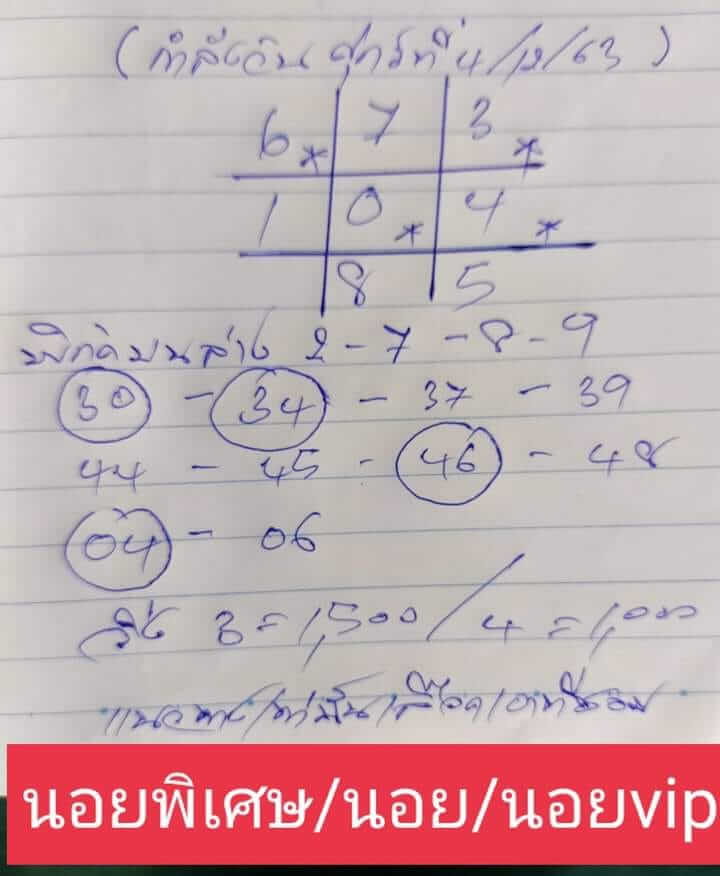 (กำลังวัน ศุกร์ที่ 4/12/63)
6* 7 3*
1 0* 4*
8 5
พิกัดบนล่าง 2-7-8-9
30 - 34 - 37 - 39
44 - 45 - 46 - 48
04 - 06
วิ่ง 3=1,500/4=1,000
แนวทาง/เท่านั้น/
นอยพิเศษ/นอย/นอยvip